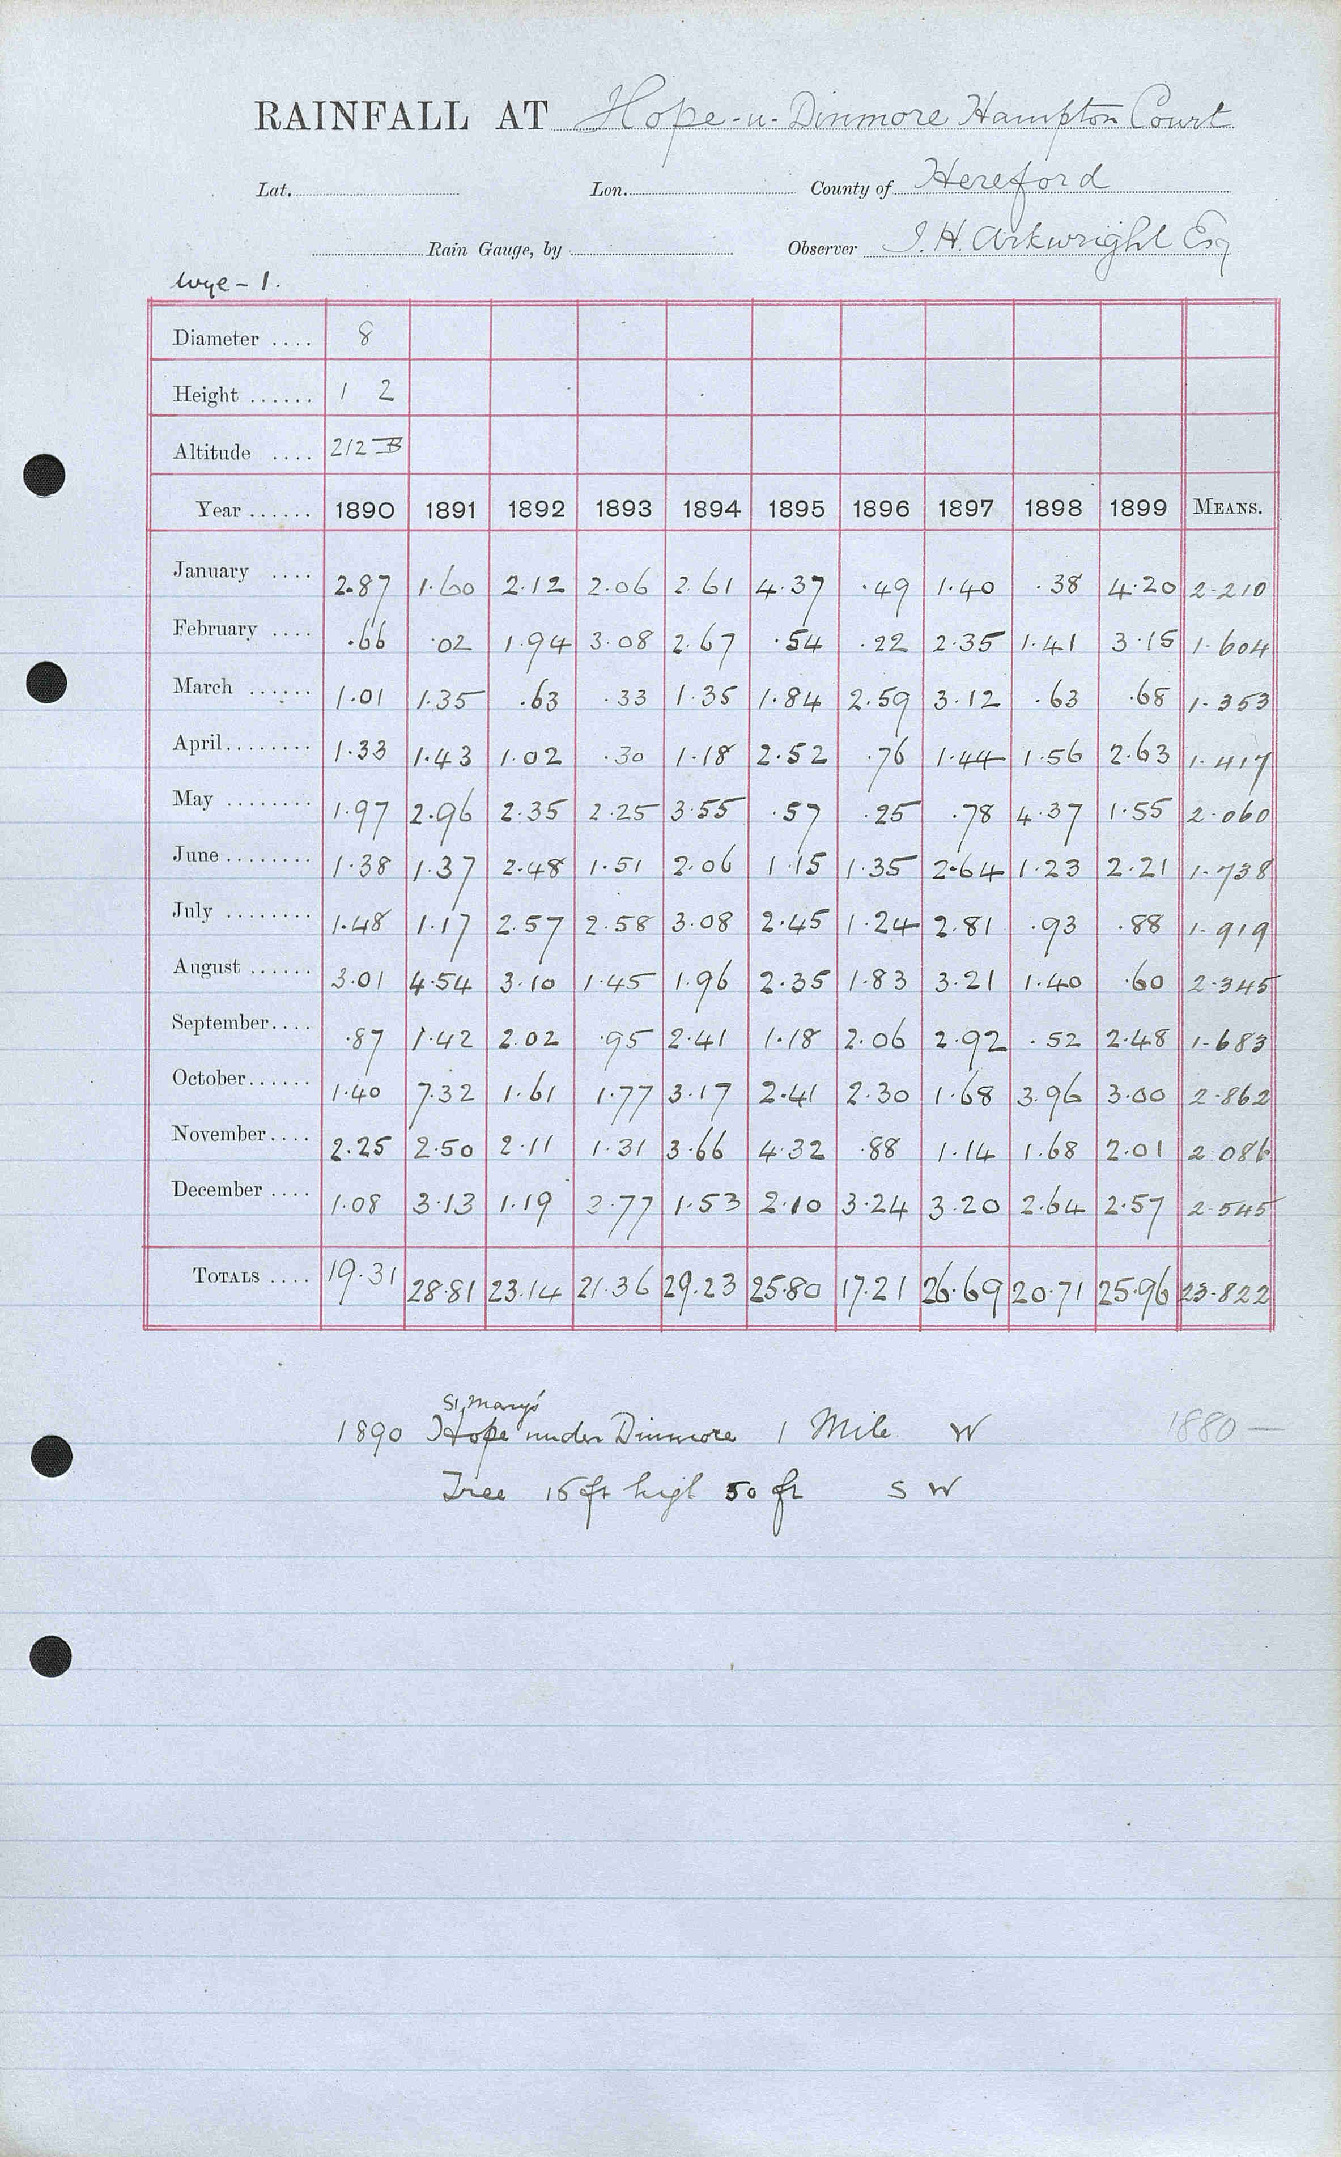 RAINFALL AT Hope-u-Dinmore Hampton Court
Lat. Lon. County of Hereford
Rain Gauge, by Observer J. H. Arkwright Esq
Wye - 1.
Diameter .... 8
Height ...... 1 2
Altitude .... 212 B
Year ...... 1890 1891 1892 1893 1894 1895 1896 1897 1898 1899 MEANS.
January .... 2.87 1.60 2.12 2.06 2.61 4.37 .49 1.40 .38 4.20 2.210
February .... .66 .02 1.94 3.08 2.67 .54 .22 2.35 1.41 3.15 1.604
March ...... 1.01 1.35 .63 .33 1.35 1.84 2.59 3.12 .63 .68 1.353
April ........ 1.33 1.43 1.02 .30 1.18 2.52 .76 1.44 1.56 2.63 1.417
May ........ 1.97 2.96 2.35 2.25 3.55 .57 .25 .78 4.37 1.55 2.060
June ........ 1.38 1.37 2.48 1.51 2.06 1.15 1.35 2.64 1.23 2.21 1.738
July ........ 1.48 1.17 2.57 2.58 3.08 2.45 1.24 2.81 .93 .88 1.919
August ...... 3.01 4.54 3.10 1.45 1.96 2.35 1.83 3.21 1.40 .60 2.345
September.... .87 1.42 2.02 .95 2.41 1.18 2.06 2.92 .52 2.48 1.683
October...... 1.40 7.32 1.61 1.77 3.17 2.41 2.30 1.68 3.96 3.00 2.862
November.... 2.25 2.50 2.11 1.31 3.66 4.32 .88 1.14 1.68 2.01 2.086
December .... 1.08 3.13 1.19 3.77 1.53 2.10 3.24 3.20 2.64 2.57 2.545
TOTALS .... 19.31 28.81 23.14 21.36 29.23 25.80 17.21 26.69 20.71 25.96 23.822
St Mary's
1890 Hope under Dinmore 1 Mile W 1880 —
Tree 15 ft high 50 ft S W